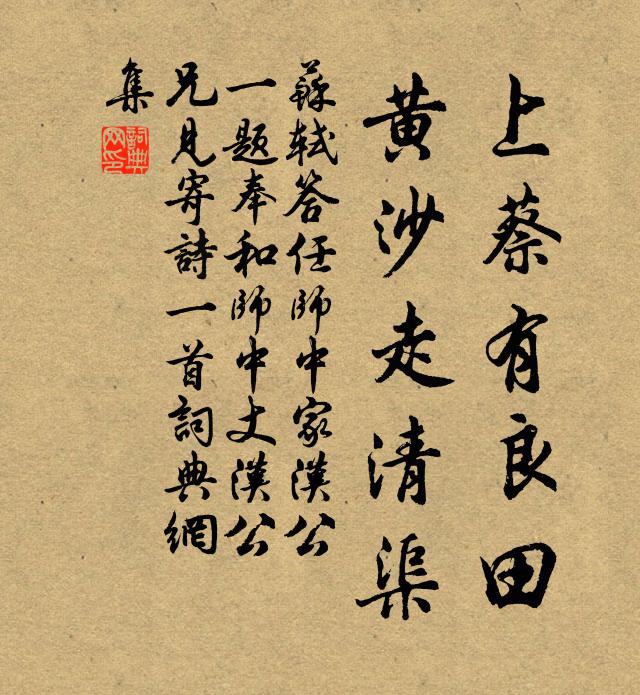 上蔡有良田
黄沙走清渠
蘇軾答任師中家漢公
一題奉和師中丈漢公
兄見寄詩一首詞典網
集
詞典
网印